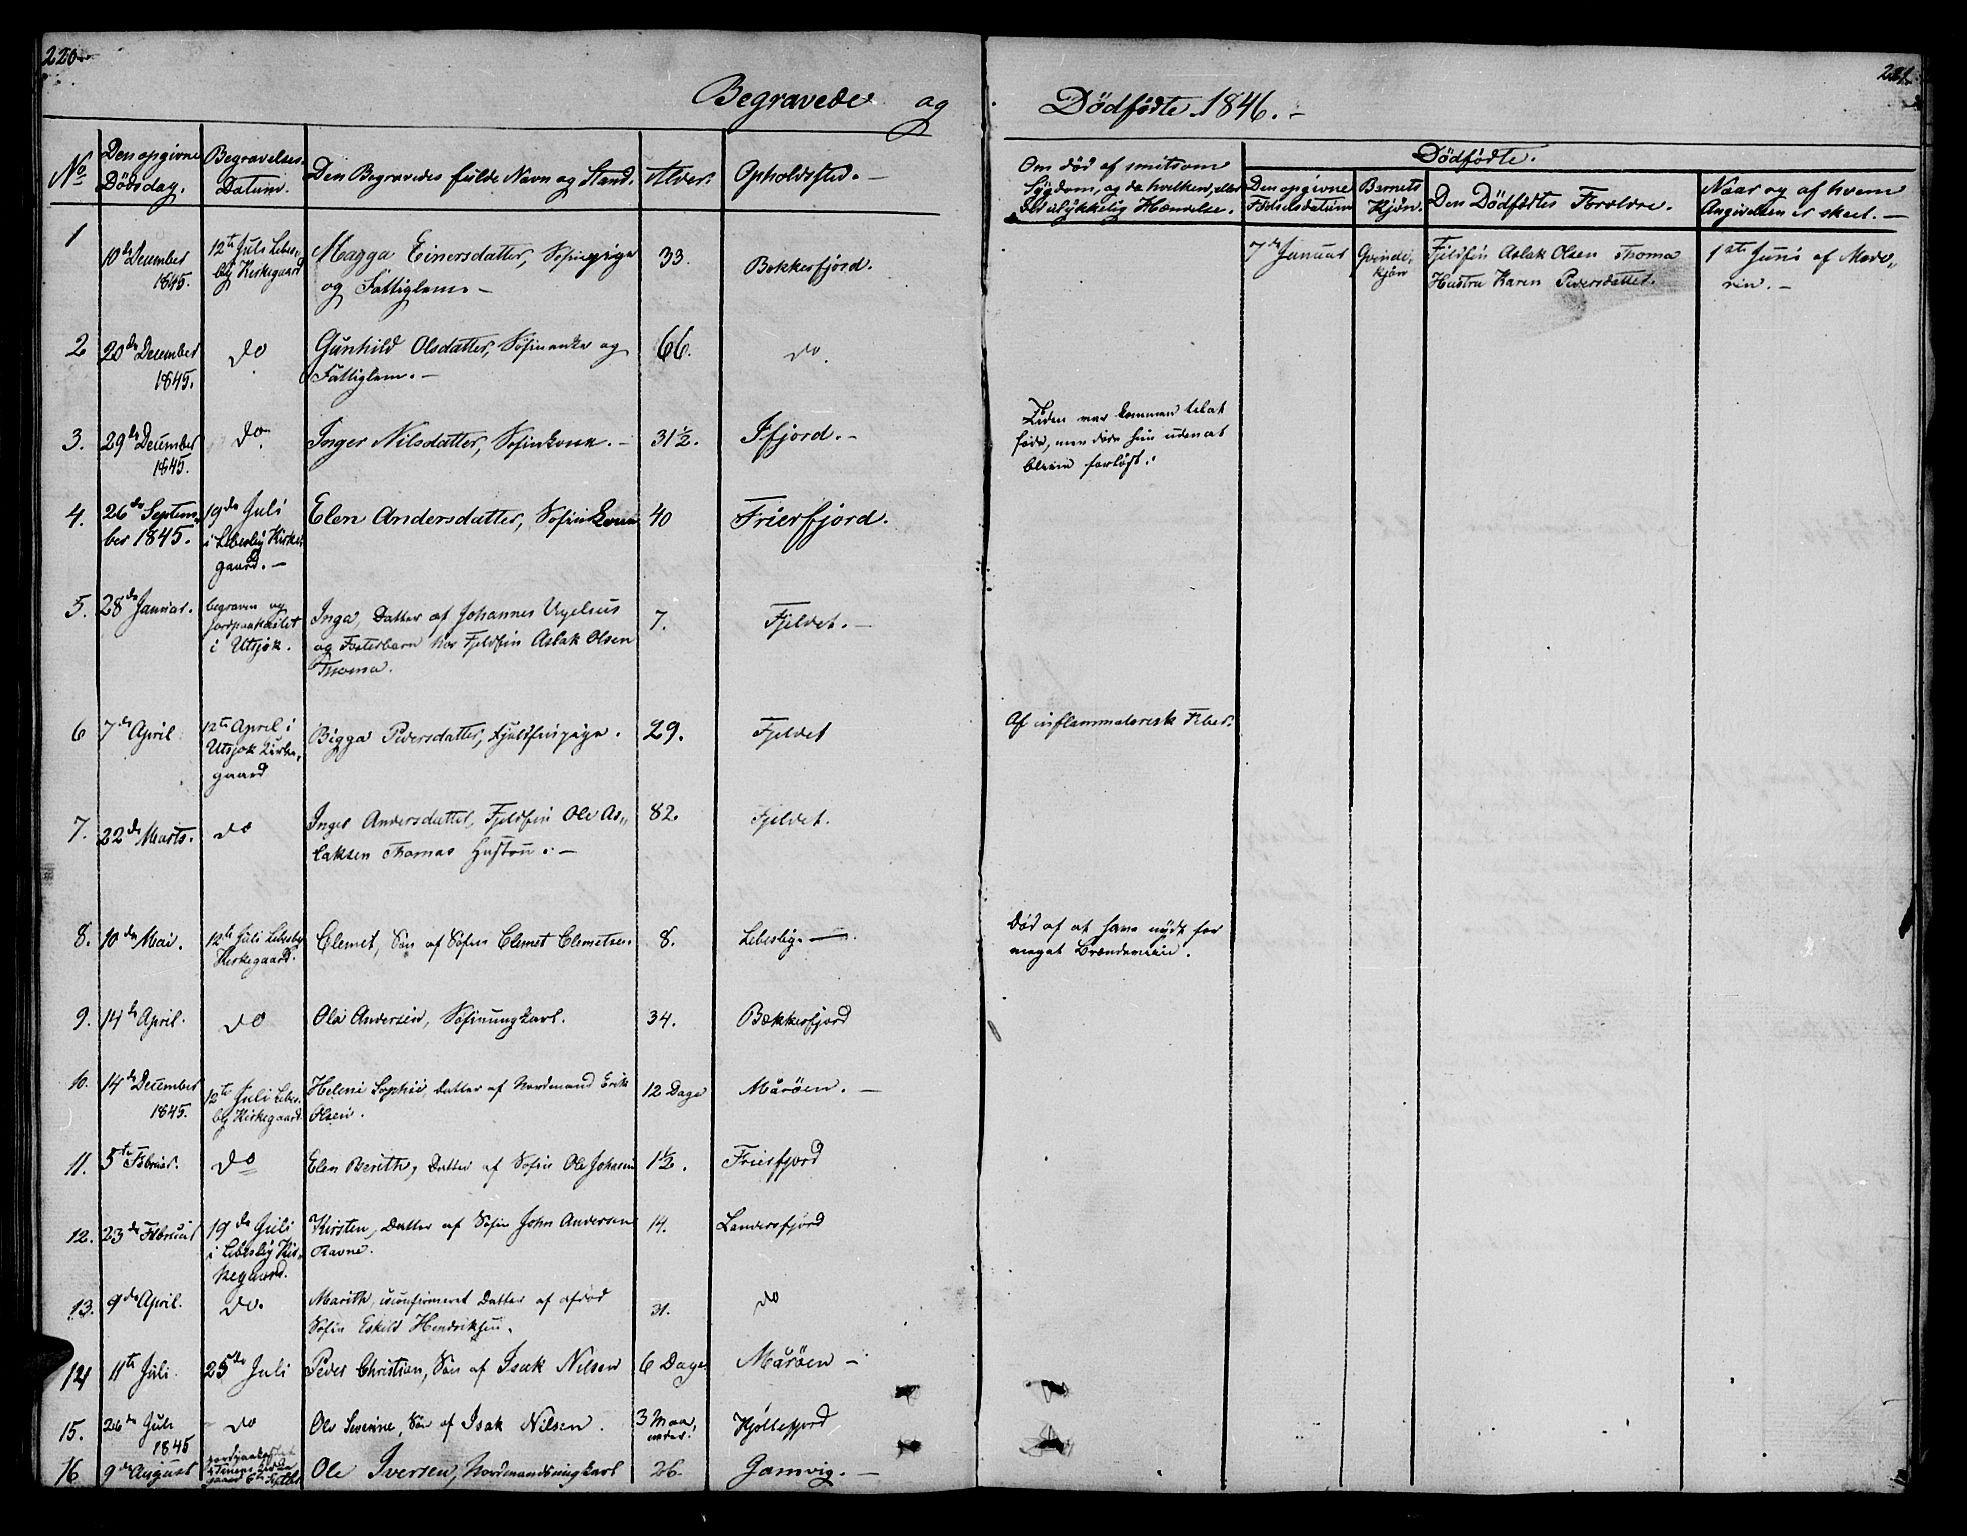 220
221
Begravede og
Dödfödte 1846. -
No
Den opgivne
Dödsdag.
Begravelses-
Datum.
Den Begravedes fulde Navn og Stand.
Alder.
Opholdsted. -
Om död af smitsom
Sygdom, og da hvilken, eller
ved ulykkelig Hændelse.
Dödfödte.
Den opgivne
Födselsdatum
Barnets
Kjön.
Den Dödfödtes Forældre.
Naar og af hvem
Angivelsen er skeet. -
1
10de December
1845.
12te Juli Lebes-
by Kirkegaard
Magga Einersdatter, Söfinpige
og Fattiglem. -
33.
Bekkerfjord.
7de Januar
Qvinde-
kjön
Fjeldfin Aslak Olsen Thoma
Hustru Karen Pedersdatter.
1ste Juni af Mode-
ren. -
2
20de December
1845.
do
Gunhild Olsdatter, Söfinenke og
Fattiglem. -
66.
do.
3.
29de December
1845.
do.
Inger Nilsdatter, Söfinkone. -
31½.
Ifjord. -
Tiden var kommen til at
föde, men döde hun uden at
blive forlöst.
4.
26de Septem-
ber 1845.
19de Juli
i Lebesby Kirke-
gaard. -
Elen Andersdatter, Söfinkone
40
Frierfjord.
5.
28de Januar.
begraven og
jordpaakastet
i Utsjok.
Inga, Datter af Johannes
og Fosterbarn hos Fjeldfin Aslak Olsen
Thoma.
7.
Fjeldet. -
6
7de April
12te April i
Utsjok Kirke-
gaard
Bigga Pedersdatter, Fjeldfinpige.
29.
Fjeldet
Af inflammatorisk Feber.
7.
22de Marts.
do
Inger Andersdatter, Fjeldfin Ole As-
laksen Thomas Hustru. -
82.
Fjeldet.
8.
10de Mai.
12te Juli Lebesby
Kirkegaard.
Clemet, Sön af Söfin Clemet Clemetsen
8.
Lebesby. -
Död af at have nydt for
meget Brændeviin.
9.
14de April.
do
Ole Andersen, Söfinungkarl.
34.
Bekkerfjord
10.
14de December
1845.
12te Juli Lebes-
by Kirkegaard
Heline Sophie, Datter af Nordmand Erik
Olsen.
12 Dage
Måröen. -
11.
5te Februar.
do
Elen Berith, Datter af Söfin Ole Johnsen
1½.
Frierfjord
12.
23de Februar
19de Juli
i Lebesby Kir-
kegaard.
Kirsten, Datter af Söfin John Andersen
Ravne.
14.
Landersfjord
13.
9de April.
do.
Marith, uconfirmeret Datter af afdöd
Söfin Eskild Hendriksen.
31.
do
14
11te Juli
25de Juli
Peder Christian, Sön af Isak Nilsen
6 Dage
Måröen -
15.
26de Juli
1845
do
Ole Severine, Sön af Isak Nilsen.
3 Maa-
neder.
Kjöllefjord
16
9de August
Ole Iversen, Nordmandsungkarl
26.
Gamvig. -